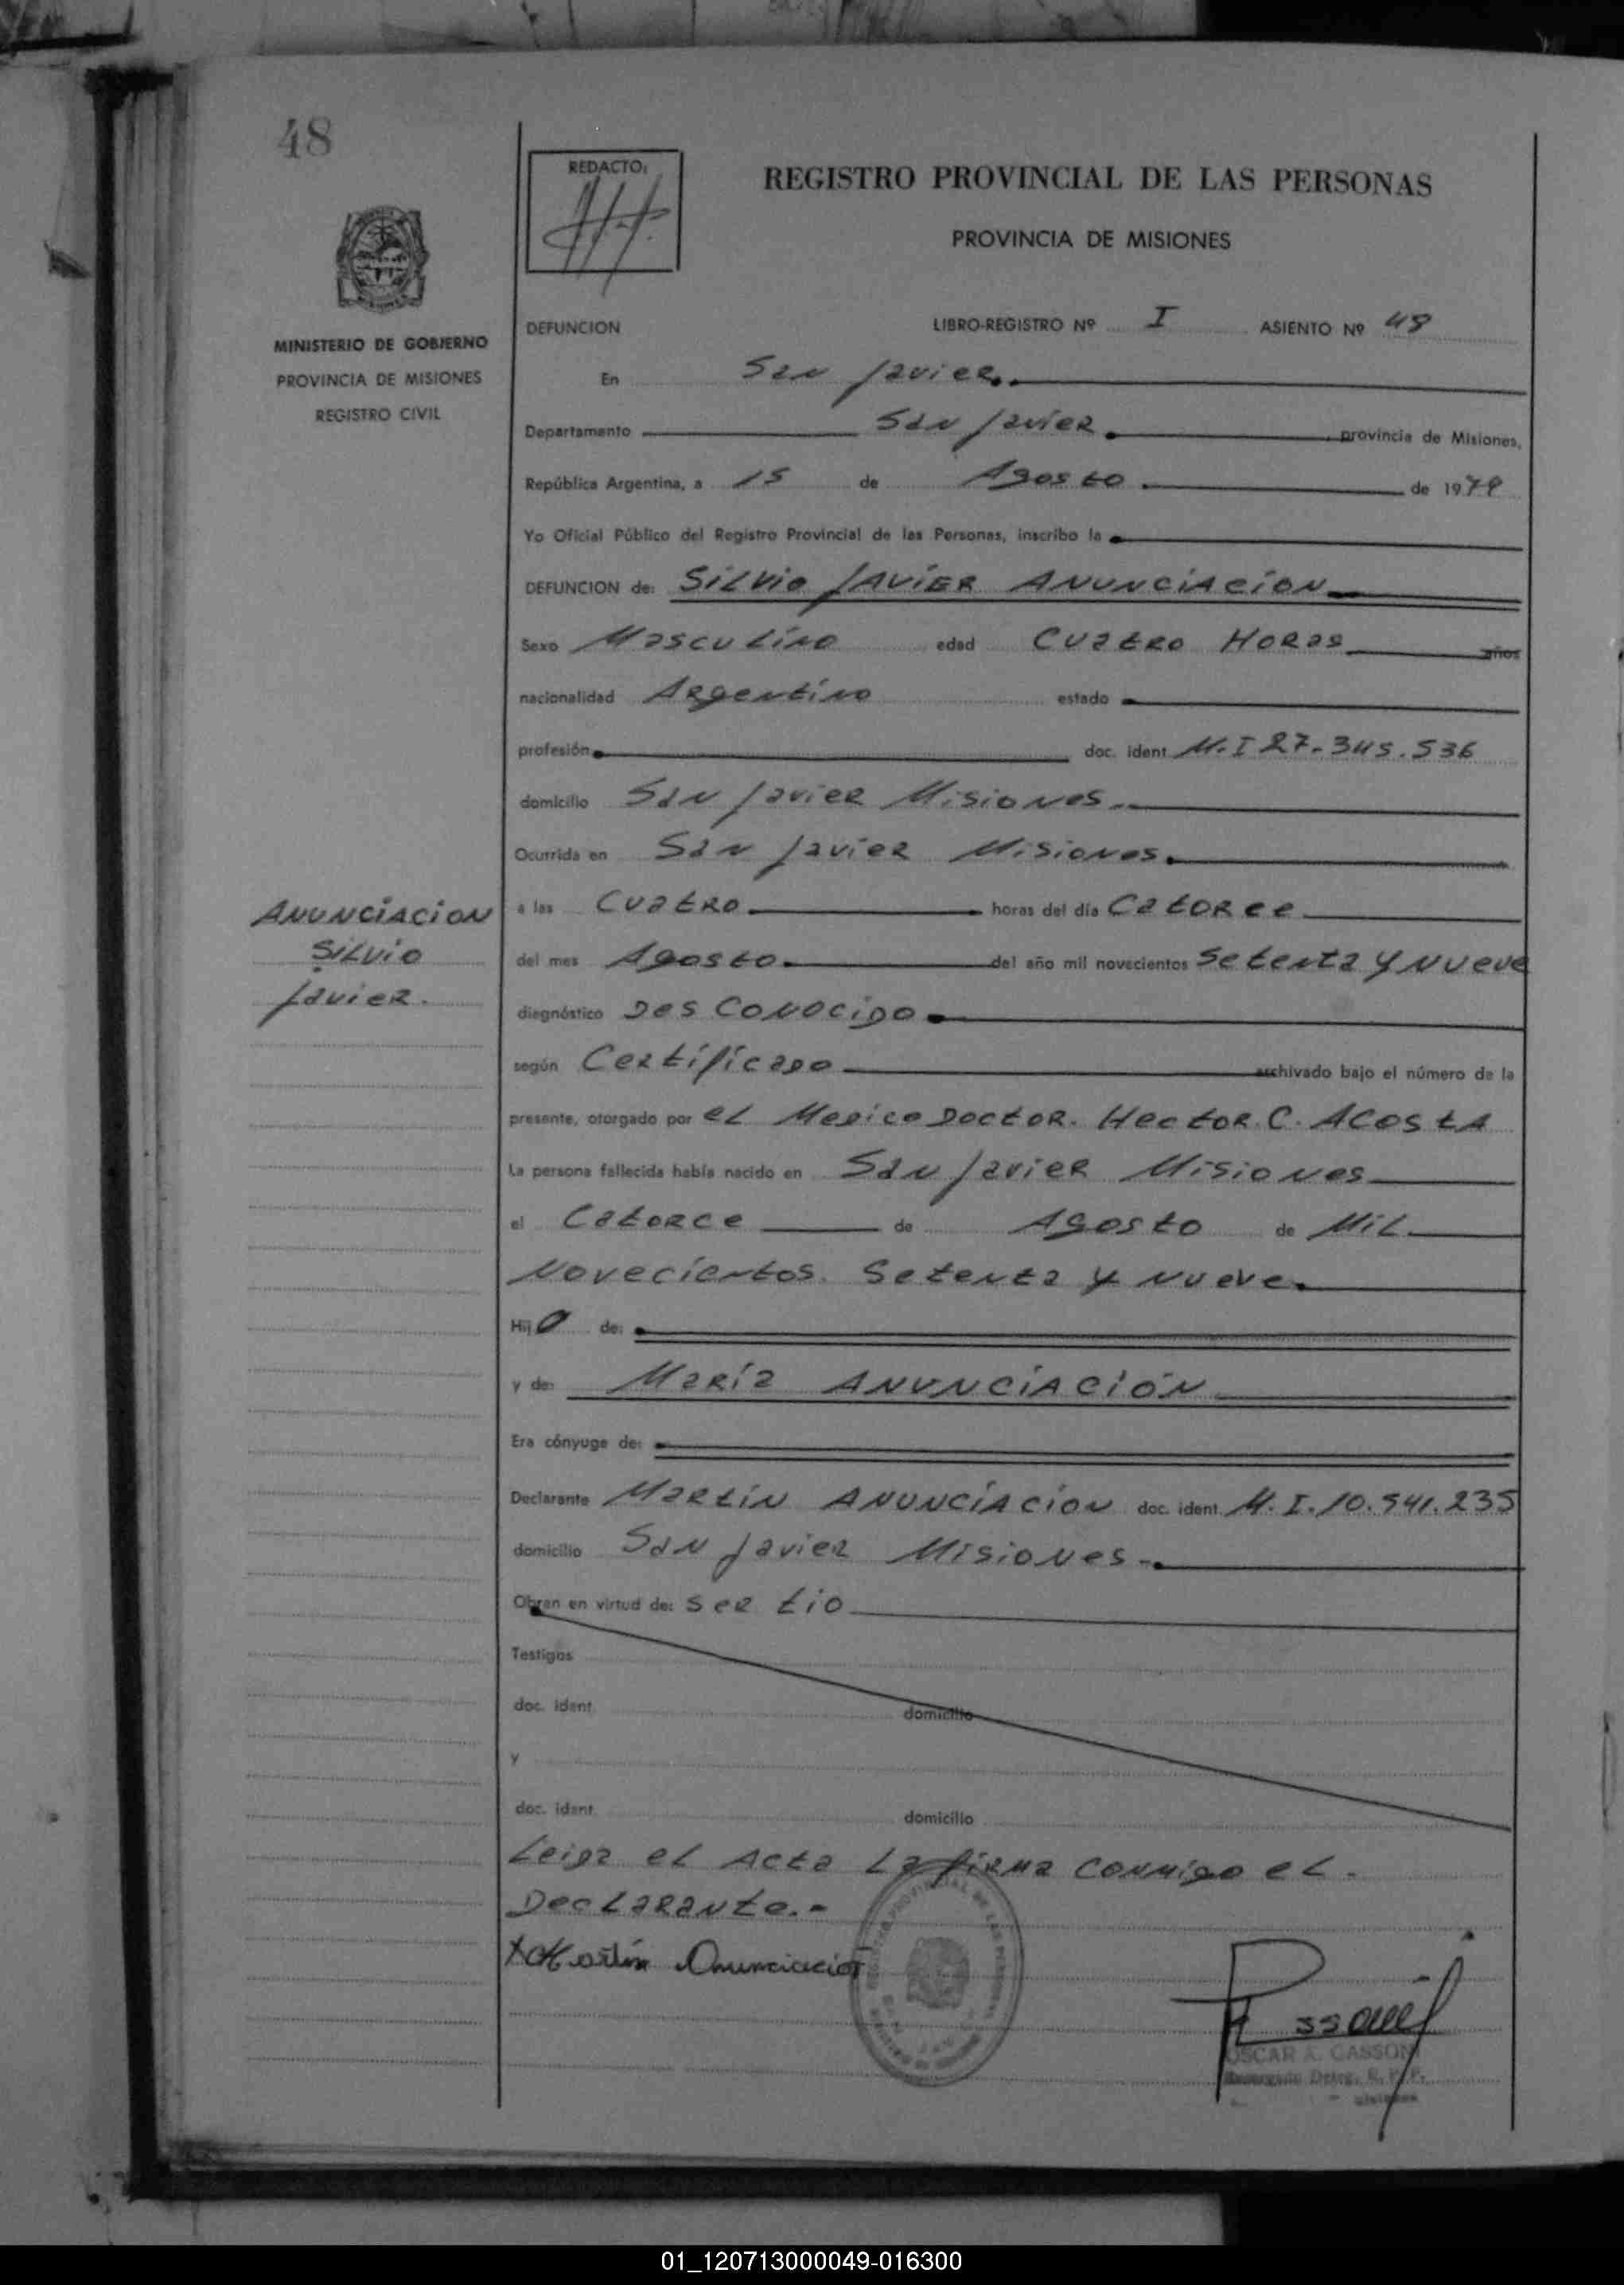 48
REDACTO:
REGISTRO PROVINCIAL DE LAS PERSONAS
PROVINCIA DE MISIONES
MINISTERIO DE GOBIERNO
PROVINCIA DE MISIONES
REGISTRO CIVIL
DEFUNCION LIBRO-REGISTRO Nº I ASIENTO Nº 48
En San Javier.
Departamento San Javier. provincia de Misiones,
República Argentina, a 15 de Agosto de 1979
Yo Oficial Público del Registro Provincial de las Personas, inscribo la
DEFUNCION de: SILVIO JAVIER ANUNCIACION
Sexo Masculino edad Cuatro Horas años
nacionalidad Argentino estado
profesión doc. ident M.I 27.345.536
domicilio San Javier Misiones.
Ocurrida en San Javier Misiones.
a las Cuatro horas del día Catorce
del mes Agosto del año mil novecientos Setenta y nueve
diagnóstico Desconocido
según Certificado archivado bajo el número de la
presente, otorgado por el Medico Doctor. Hector. C. Acosta
La persona fallecida había nacido en San Javier Misiones
el Catorce de Agosto de Mil
Novecientos. Setenta y nueve.
Hijo de:
y de: María ANUNCIACIÓN
Era cónyuge de:
Declarante Martín ANUNCIACION doc. ident. M.I.10.541.235
domicilio San Javier Misiones-.
Obran en virtud de: ser tio
Testigos
doc. ident domicilio
y
doc. ident domicilio
Leida el Acta La firma conmigo el.
Declarante.-
Martín Anunciación
ANUNCIACION
SILVIO
Javier.
OSCAR A. CASSONI
01_120713000049-016300